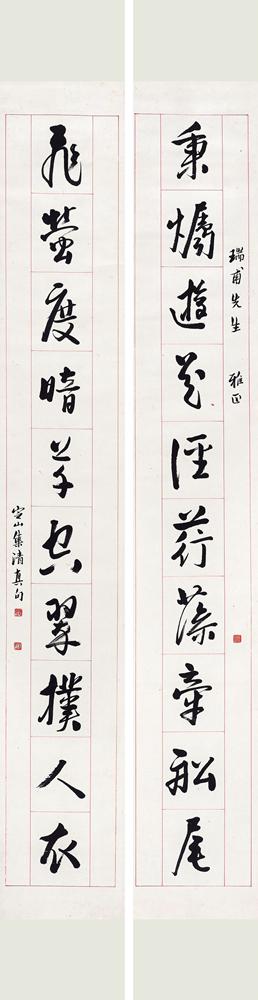 瑞甫先生 雅正
秉爥遊花徑荇藻牽舩尾
飛螢度暗草空翠撲人衣
定山集清真句